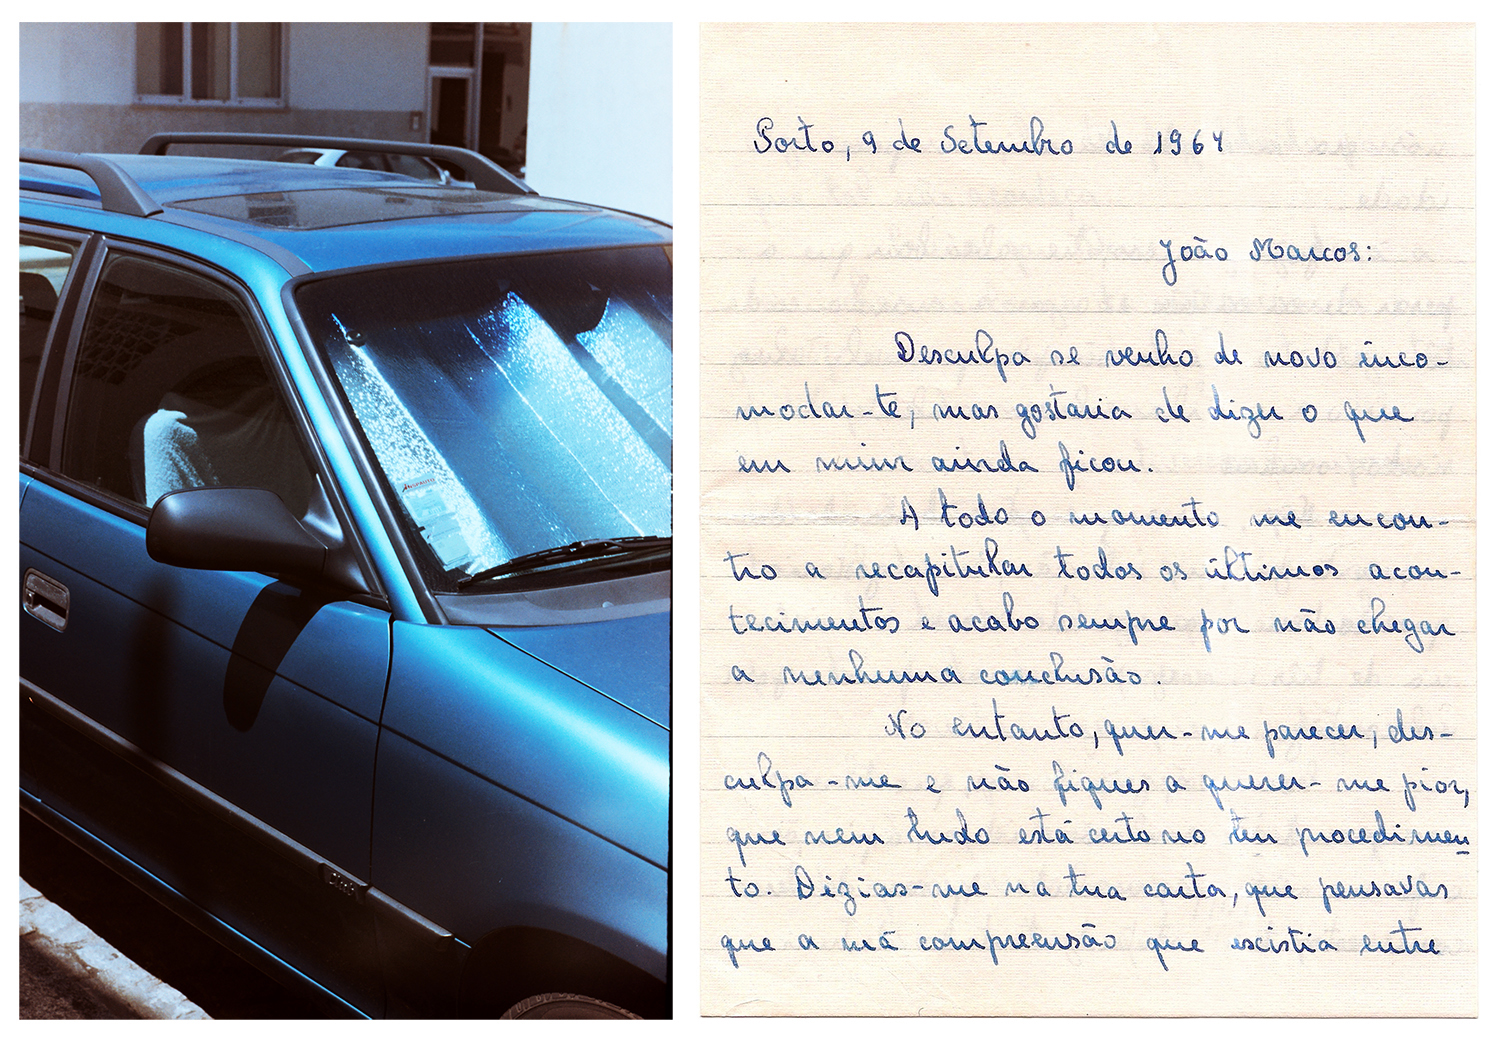 Porto, 9 de Setembro de 1964
João Marcos:
Desculpa se venho de novo inco-
modar-te, mas gostaria de dizer o que
em mim ainda ficou.
A todo o momento me encon-
tro a recapitular todos os últimos acon-
tecimentos e acabo sempre por não chegar
a nenhuma conclusão.
No entanto, quer-me parecer, des-
culpa-me e não fiques a querer-me pior,
que nem tudo está certo no teu procedimen
to. Dizias-me na tua carta, que pensavas
que a má compreensão que escistia entre